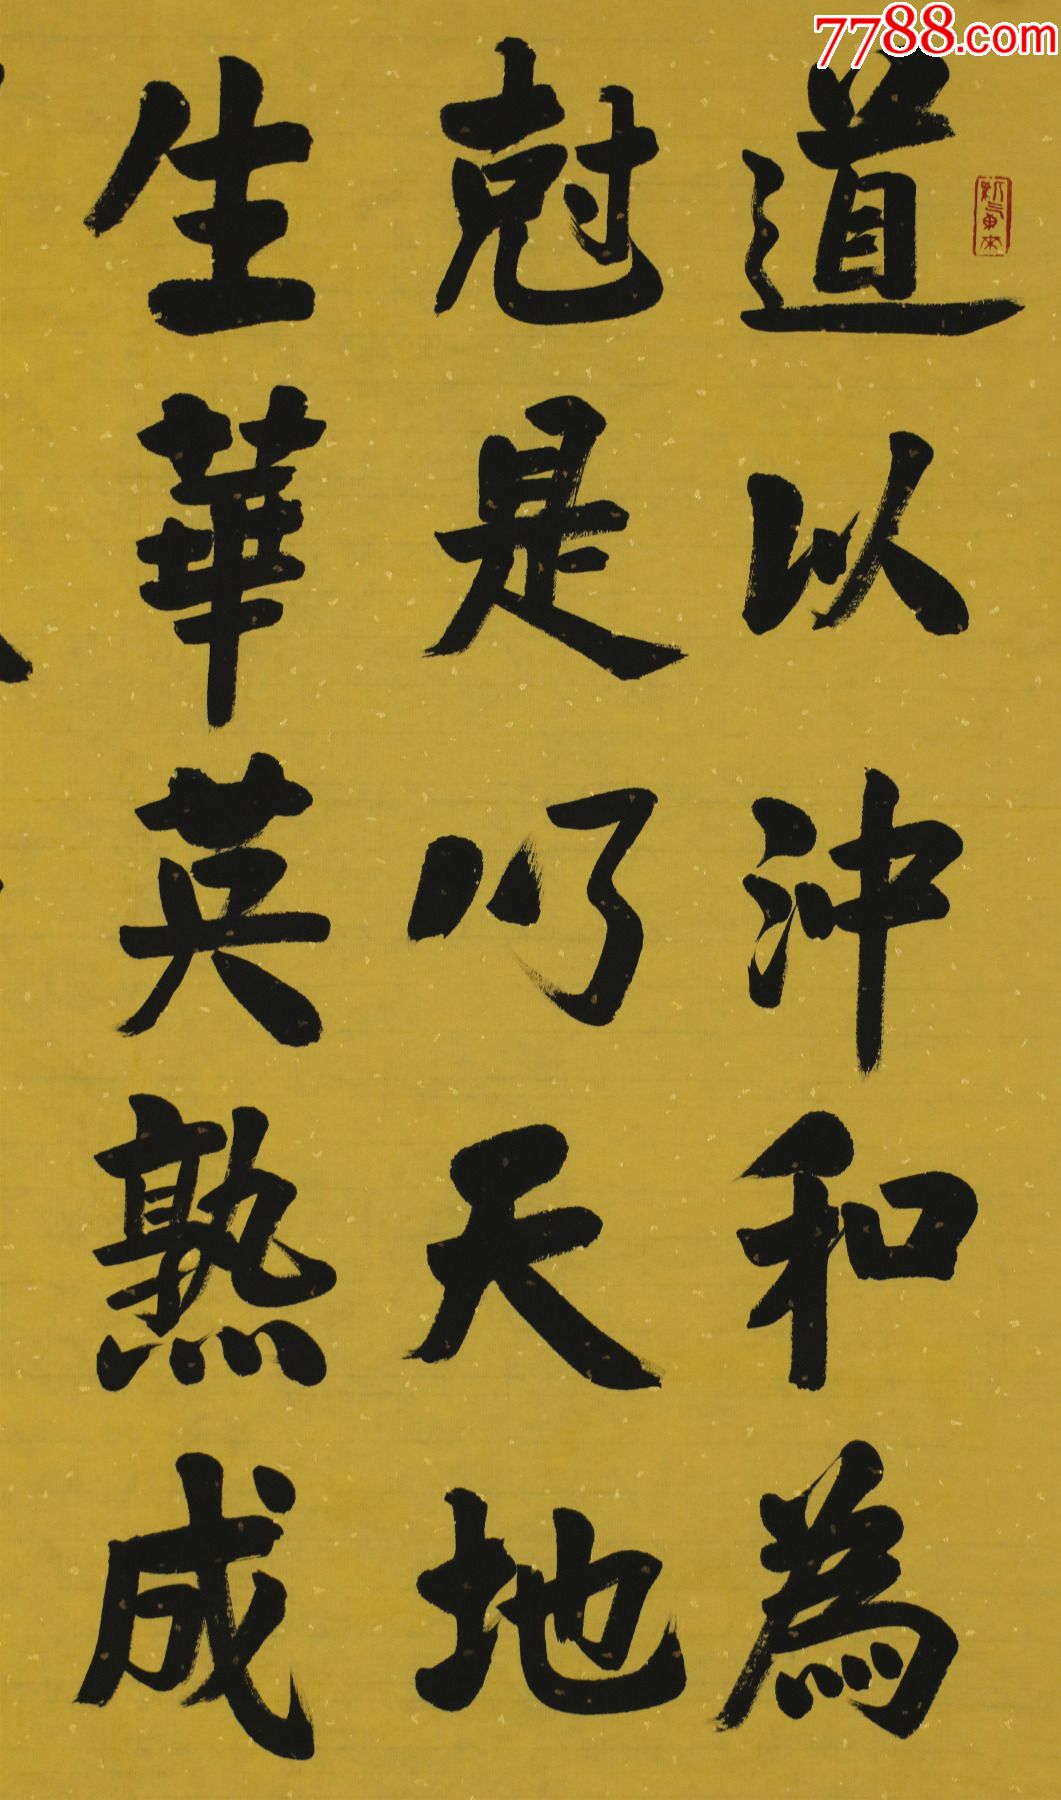 7788.com
道以沖和為
尅是乃天地
生華英熟成